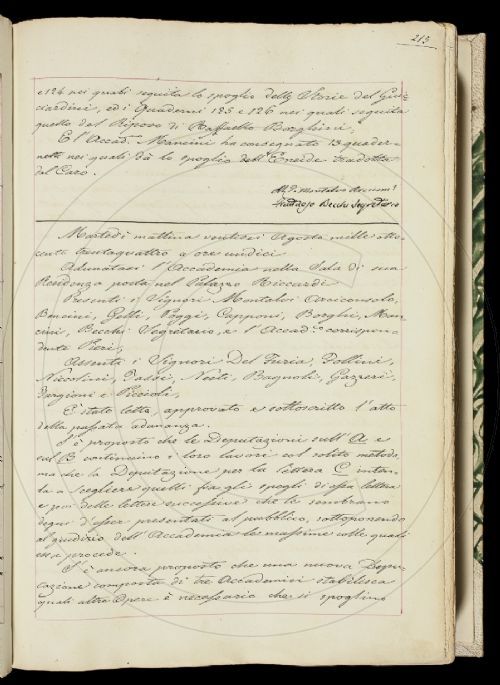 213
e 124 nei quali seguita lo spoglio delle Storie del Guic-
ciardini, ed i Quaderni 125 e 126 nei quali seguita
quello del Riposo di Raffaello Borghini.
E l'Accad. Mancini ha consegnato 13 quader-
netti nei quali dà lo spoglio dell'Eneide tradotta
dal Caro.
Montalvo Arcicons.
Fruttuoso Becchi Segretario
Martedì mattina ventisei Agosto mille otto-
cento trentaquattro a ore undici
Adunatasi l'Accademia nella Sala di sua
Residenza posta nel Palazzo Riccardi
Presenti i Signori Montalvi Arciconsolo,
Bencini, Gotti, Poggi, Capponi, Borghi, Man-
cini, Becchi Segretario, e l'Accad.co corrispon-
dente Pieri,
Assenti i Signori Del Furia, Follini,
Niccolini, Tassi, Nesti, Bagnoli, Gazzeri,
Targioni e Piccioli,
È stato letto, approvato e sottoscritto l'atto
della passata adunanza.
S'è proposto che le Deputazioni sull'A e
sul B continuino i loro lavori col solito metodo,
ma che la Deputazione per la lettera C inten-
da a scegliere quelli fra gli spogli di essa lettera
e poi delle lettere successive che le sembrano
degni d'esser presentati al pubblico, sottoponendo
al giudizio dell'Accademia le massime colle quali
essa procede.
S'è ancora proposto che una nuova Depu-
tazione composta di tre Accademici stabilisca
quali altre Opere è necessario che si spoglino